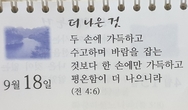 더 나은 것
두 손에 가득하고
수고하며 바람을 잡는
것보다 한 손에만 가득하고
평온함이 더 나으니라
(전 4:6)
9월 18일